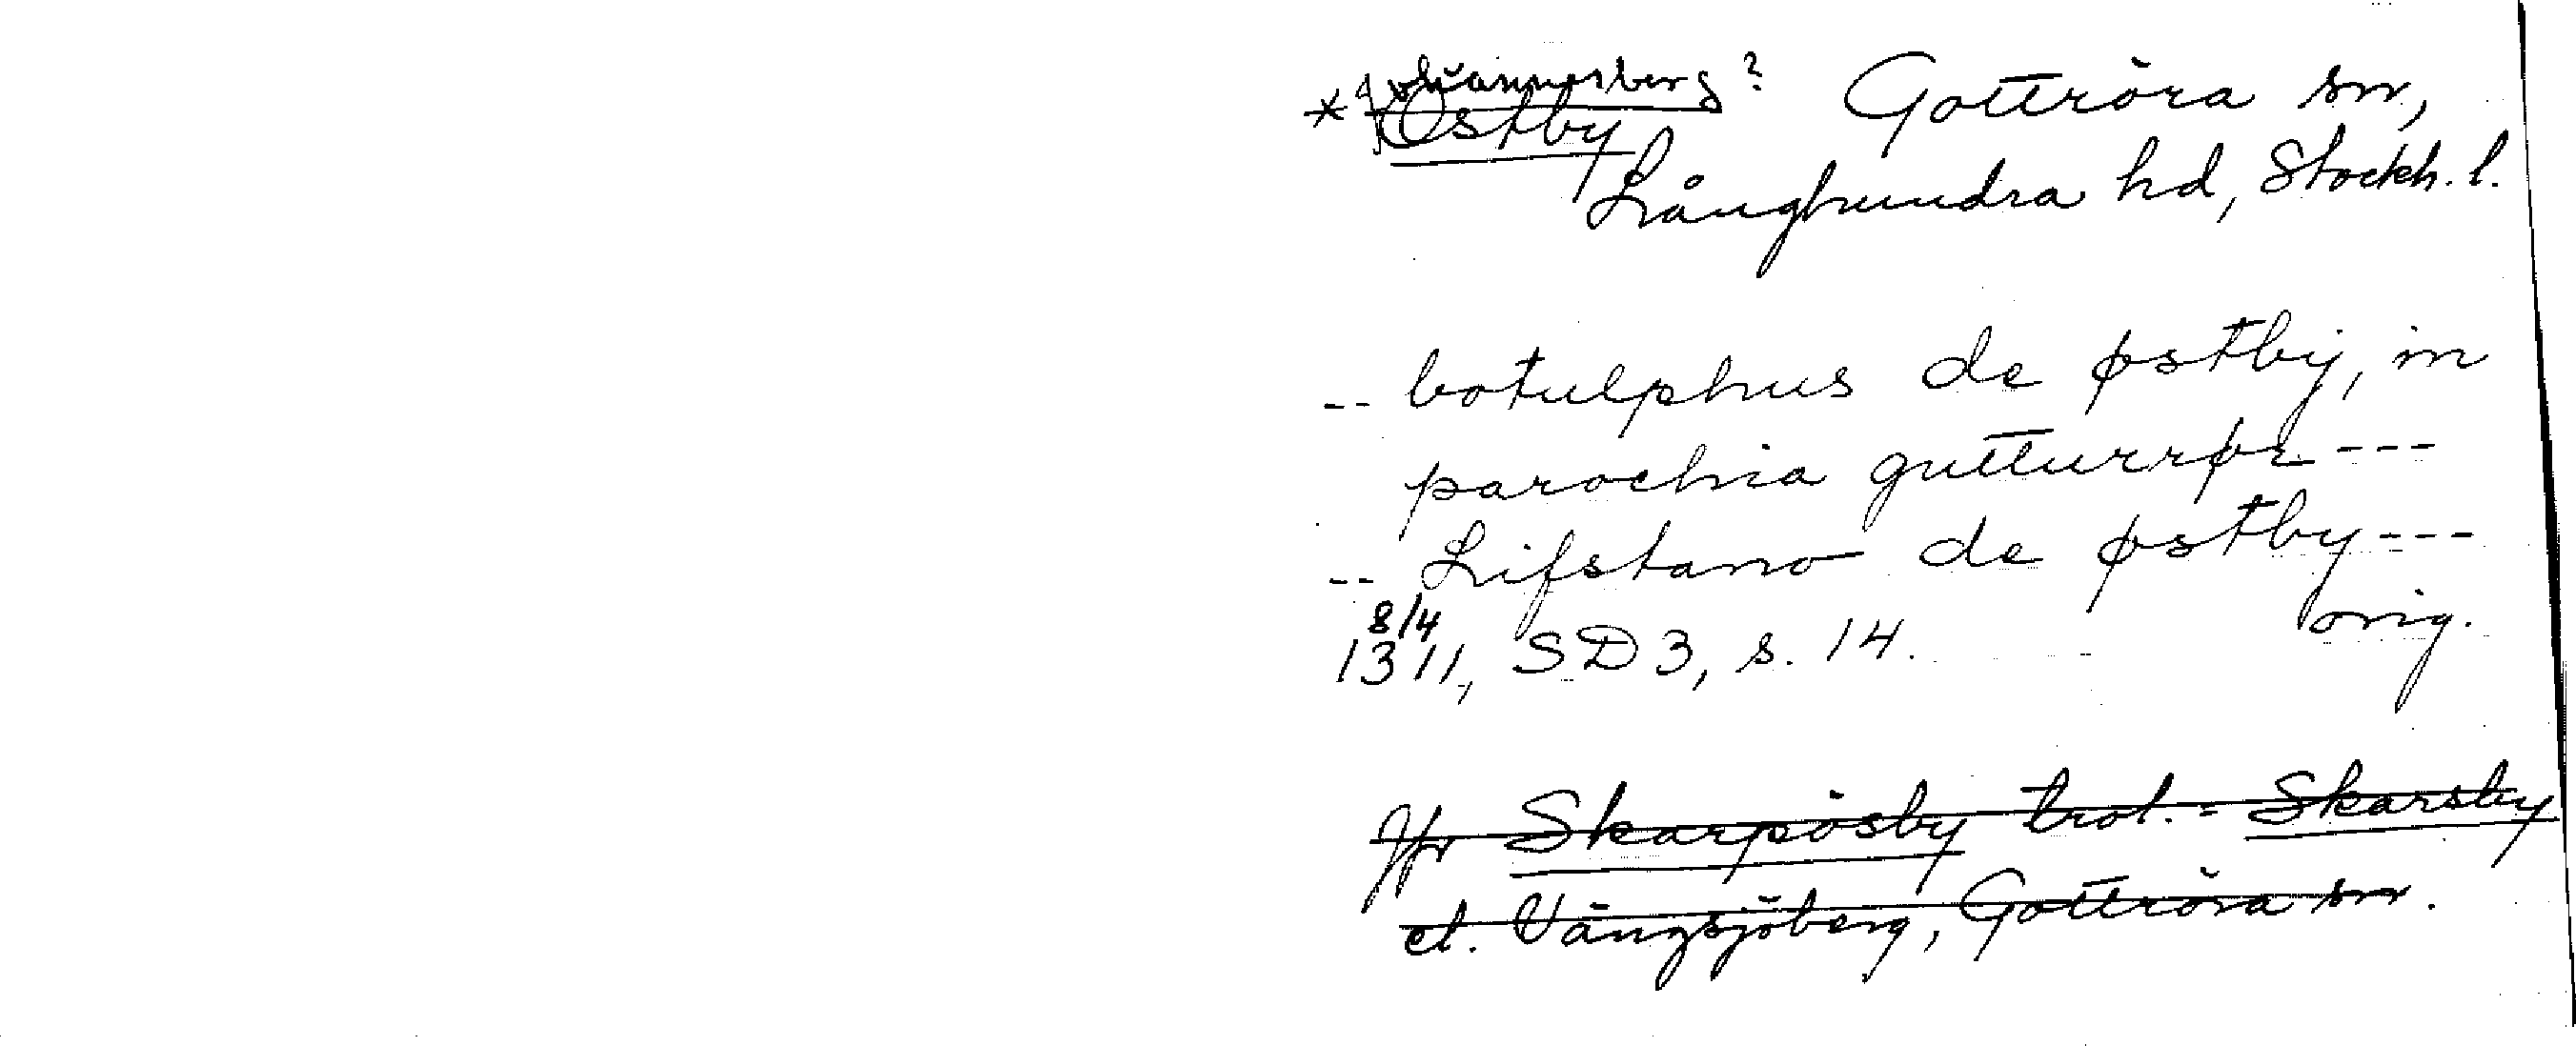 Johannesberg?
* Östby Gottröra sn,
Långhundra hd, Stockh. l.
-- botulphus de østbij, in
parochia gutturrør ---
-- Lifstano de østby ---
8/4
1311, SD 3, s. 14. orig.
Jfr Skarpösby trol. = Skarsby
el. Vängsjöberg, Gottröra sn.